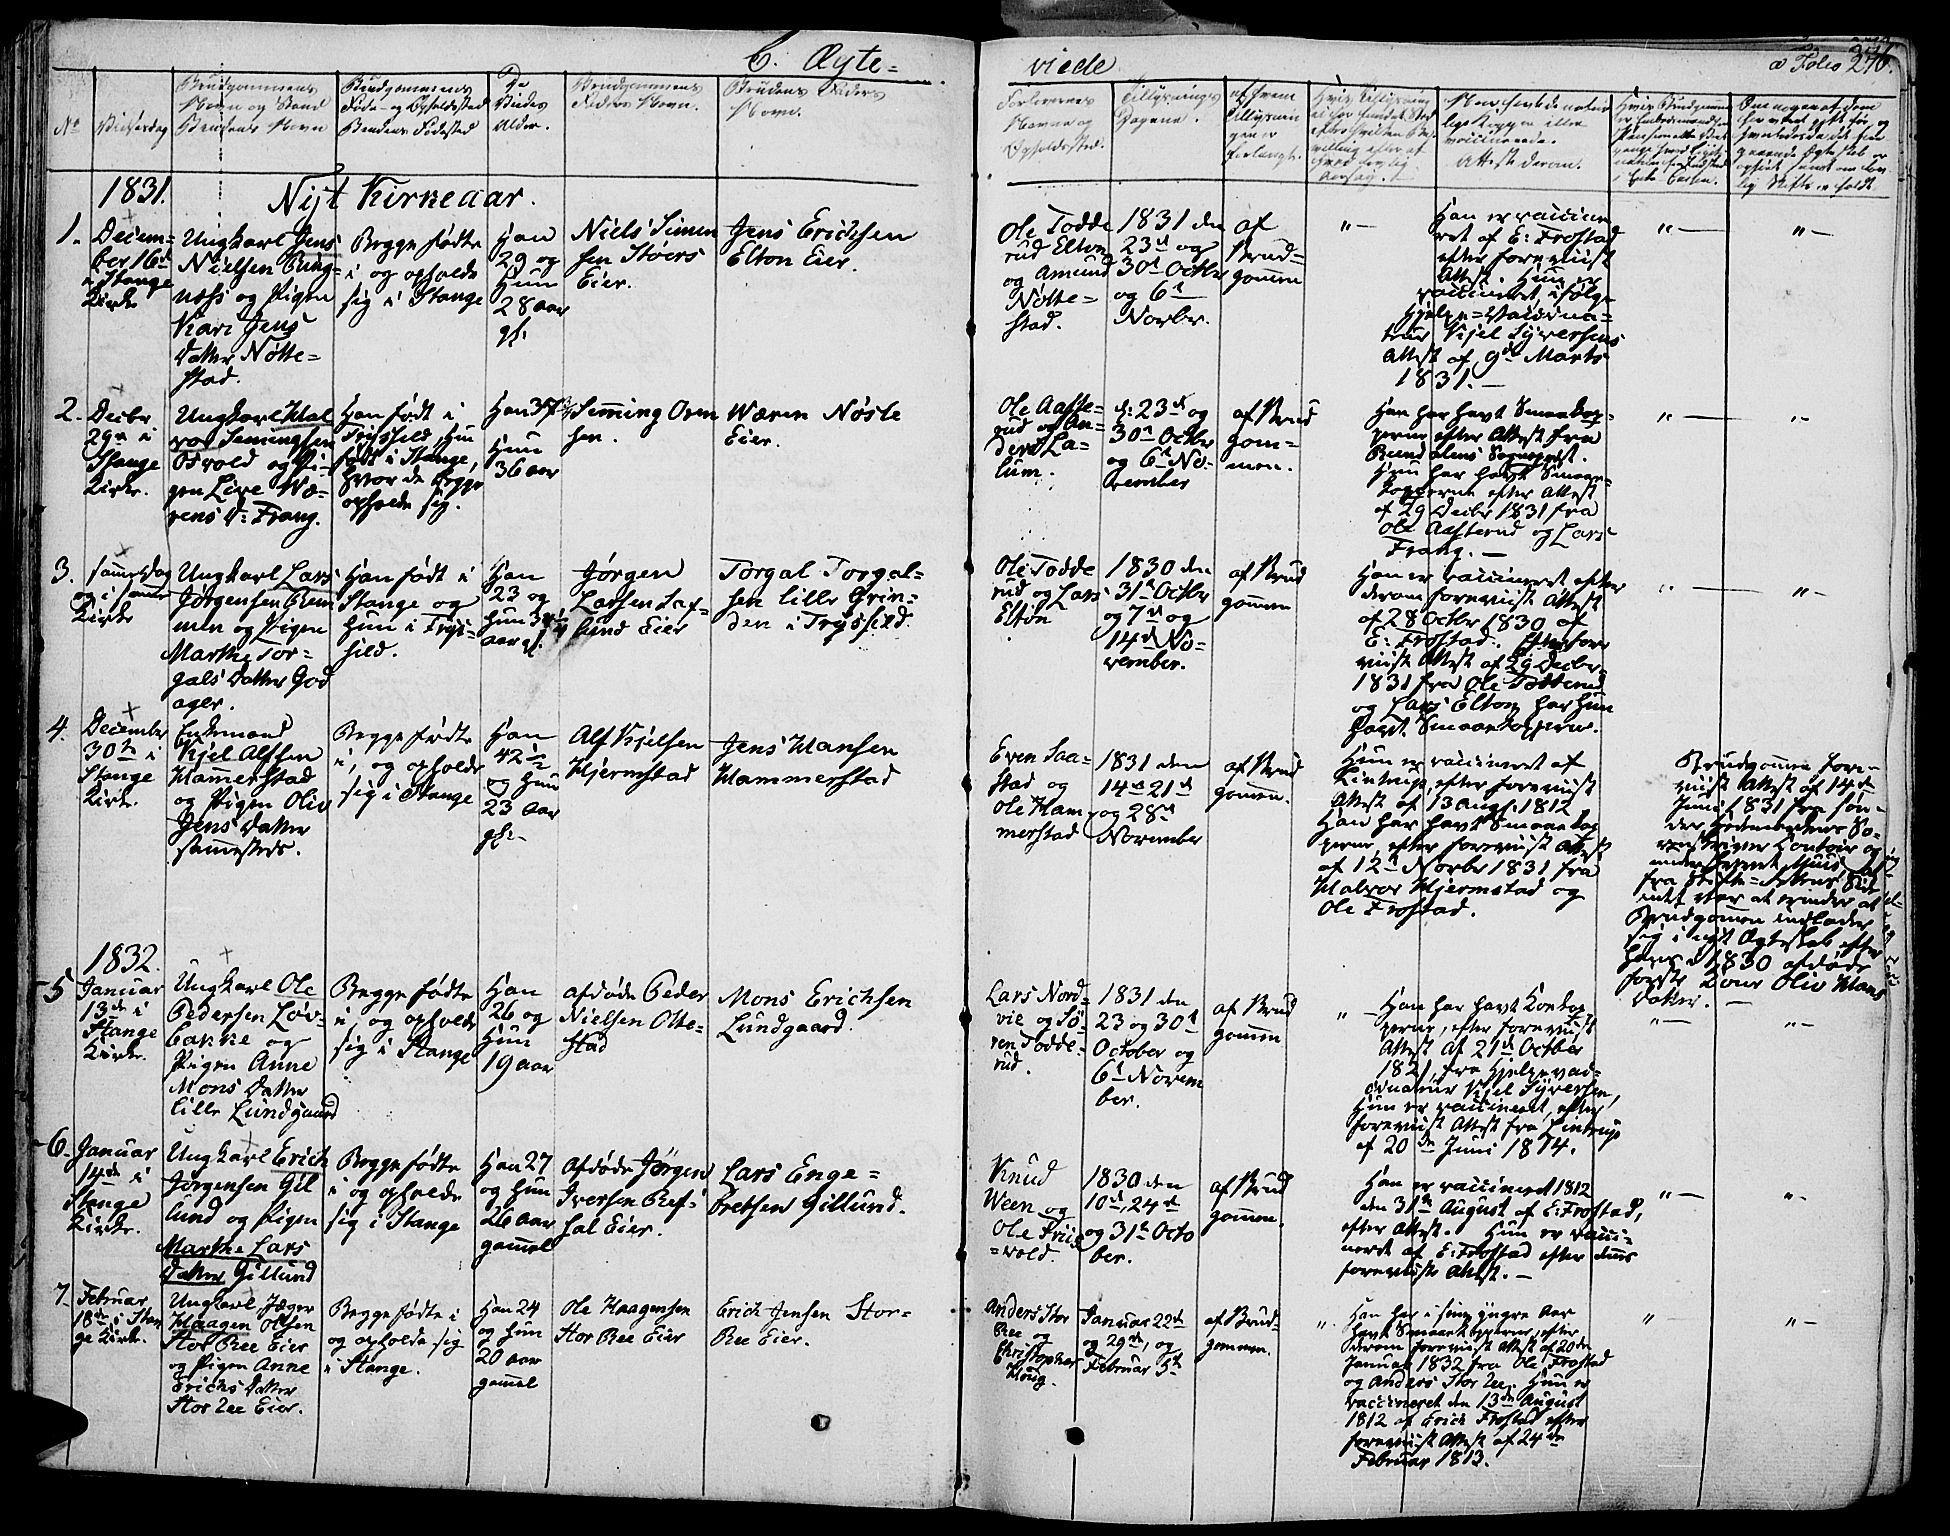 C. Ægte=
viede
a Folio 276.
No
Vielsesdag
Brudgommens
Navn og Stand
Brudens Navn
Brudgommens
Føde- og Opholdssted
Brudens Fødested
De
Viedes
Alder.
Brudgommens
Faders Navn.
Brudens Faders
Navn.
Forlovernes
Navne og
Opholdssted.
Tillysnings
Dagene.
af hvem
Tillysnin
gen er
forlangt.
Naar havde natur
lige Kopper eller
vaccinerede.
Attest derom.
1831.
Nÿt Kirkeaar.
1.
Decem=
ber 16d
i Stange
Kirke
Ungkarl Jens
Nielsen Ring=
næss og Pigen
Kari Jens
Datter Nøtte=
stad.
Begge fødte
i og opholde
sig i Stange
Han
29 og
Hun
28 aar
gl.
Niels Simen
sen Støers
Eier.
Jens Erichsen
Elton Eier.
Ole Todde
rud Elton
og Amund
Nøtte=
stad.
1831 den
23d og
30d Octbr
og 6d
Novbr.
af
Brud=
gommen
"—
Han er vaccine
ret af E: Frostad
efter foreviist
Attest. Hun er
vaccineret, ifølge
Hjelpe=Vaccina=
teur Kjel Syversens
Attest af 9d Marts
1831.—
"—
"—
2.
Decbr
29n i
Stange
Kirke.
Ungkarl Hal
vor Semingsen
Osvold og Pi=
gen Live Wæ=
rens D: Frang.
Han født i
Trysild, Hun
født i Stange,
hvor de begge
opholde sig.
Han 37
Hun
36 aar
Semming Oven
sen.
Wæren Nøste
Eier.
Ole Aaste=
rud og An=
ders La=
lum.
d: 23d og
30d Octbr
og 6d No=
vember
af Brud
gom=
men.
Han har havt Smaakop
perne efter Attest fra
Rendalens Sognepræst.
Hun har havt Smaae=
kopperne efter Attest
af 29 Decbr 1831 fra
Ole Aasterud og Lars
Frang.—
"—
"-
3.
samme Dag
og i samme
Kirke
Ungkarl Lars
Jørgensen Brem
men og Pigen
Marthe Tor=
gals Datter God
ager.
Han født i
Stange og
Hun i Trys=
sild.
Han
23 og
Hun 34 1/4
aar gl.
Jørgen
Larsen Saf=
lund Eier
Torgal Torgal=
sen lille Grin=
den i Tryssild.
Ole Todde
rud og Lars
Elton
1830 den
31d Octbr
og 7d og
14d No=
vember.
af Brud
gommen
Han er vaccineret efter
derom foreviist Attest
af 28 Octbr 1830 af
E: Frostad. Efter fore
viist Attest af 29 Decbr
1831 fra Ole Totterud
og Lars Elton har Hun
havt Smaakopperne.
"—
"—
4.
December
30te i
Stange
Kirke.
Enkemand
Kjel Alfsen
Hammerstad
og Pigen Oliv
Jens Datter
sammesteds.
Begge fødte
i, og opholde
sig i Stange
Han
42 1/2
og Hun
23 aar
gl.
Alf Kjelsen
Hjermstad
Jens Hansen
Hammerstad
Even Saa=
stad og
Ole Ham
merstad
1831 den
14d 21d
og 28d
November
af Brud
gommen.
Hun er vaccineret af
Lintrup, efter foreviist
Attest af 13 Augs. 1812
Han har havt Smaakop
perne, efter foreviist Attest
af 12d Novbr 1831 fra
Halvor Hjermstad og
Ole Frostad.
Brudgommen fore=
viist Attest af 14d
Juni 1831 fra Søn=
dre Hedemarkens So=
renskriver Contoir og
fra Skifte=Rettens Side
intet var at erindre at
Brudgommen indlader
sig i nyt Ægteskab efter
hans i 1830 afdøde
første Kone Oliv Hans
Datter.—
1832.
5
Januar
13de i
Stange
Kirke.
Ungkarl Ole
Pedersen Løv=
bakke og
Pigen Anne
Mons Datter
lille Lundgaard
Begge fødte
i, og opholde
sig i Stange
Han
26 og
Hun
19 aar
afdøde Peder
Nielsen Otte=
stad
Mons Erichsen
Lundgaard.
Lars Nord=
vie og Sø=
ren Todde=
rud.
1831 den
23 og 30d
October og
6d Novem
ber.
af Brud
gommen
"—
Han har havt Kokop
perne, efter foreviist
Attest af 21d October
1821, fra Hjelpevac=
cinateur Kjel Syversen,
Hun er vaccineret, efter
foreviist Attest fra Lintrup
af 20de Juni 1814.
"—
"-
6.
Januar
14de i
Stange
Kirke.
Ungkarl Erich
Jørgensen Gil
lund og Pigen
Marthe Lars
Datter Gillund
Begge fødte
i og opholde
sig i Stange
Han 27
og Hun
26 aar
gammel
Afdøde Jørgen
Iversen Ref=
sal Eier.
Lars Enge=
bretsen Gillund.
Knud
Ween og
Ole Friis
=vold.
1830 den
10d, 24d
og 31d Octo
ber.
af Brud
gommen.
Han er vaccineret 1812
den 31d August af E: Frostad,
efter Attest. Hun er vacci=
neret af E: Frostad efter dens
foreviiste Attest.—
"—
"-
7.
Februar
18de i Stan
ge Kirke.
Ungkarl Jæger
Haagen Olsen
Stor Ree Eier
og Pigen Anne
Erichs Datter
Stor Ree Eier.
Begge fødte i
og opholde sig
i Stange.
Han 24
og Hun
20 aar
gammel
Ole Haagensen
Stor Ree Eier
Erich Jensen Stor=
Ree Eier.
Anders Stor
Ree og
Christopher
Houg.
Januar 22d
og 29de, og
Februar 5d
af Brud=
gommen.
".
Han har i sine yngre Aar
havt Smaakopperne, efter
derom foreviist Attest af 20de
Januar 1832 fra Ole Frostad
og Anders Stor Ree. Hun er
vaccineret den 13de August
1812 af Erich Frostad efter
foreviist Attest af 24de
Februar 1813.
"—
"—